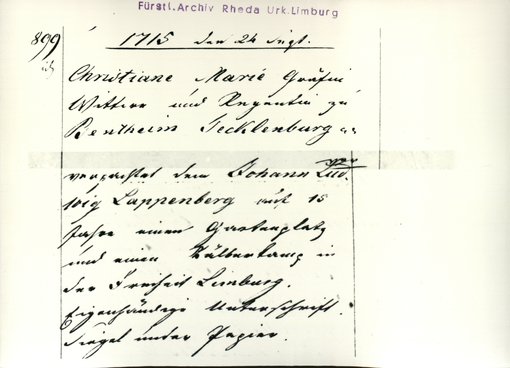 Fürstl. Archiv Rheda Urk. Limburg
899
1715 den 24 Sept.
Christiane Marie Gräfin
Wittwe und Regentin zu
Bentheim Tecklenburg
verpachtet dem Johann Lud-
wig Lappenberg auf 15
Jahre einen Gartenplatz
und einen Kälberkamp in
der Freiheit Limburg.
Eigenhändige Unterschrift.
Siegel unter Papier.